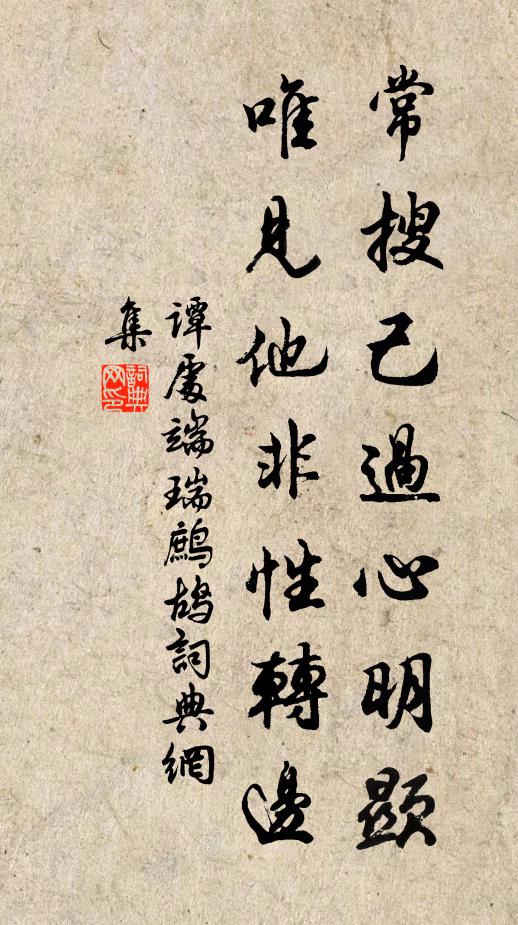 常搜己過心明顯
唯見他非性轉邊
譚處端瑞鷓鴣詞典網
集
詞典網印